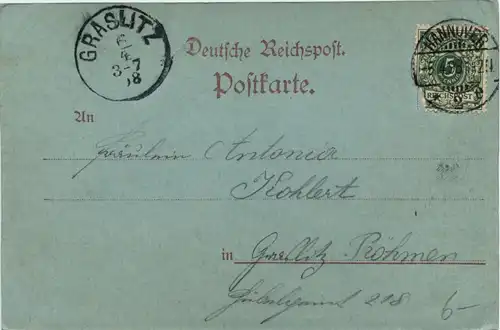 GRASLITZ
6/4
3-7
98
Deutsche Reichspost.
Postkarte.
HANNOVER
5
REICHSPOST
An
Fräulein Antonia
Kohlert
in Graslitz Böhmen
218
6-